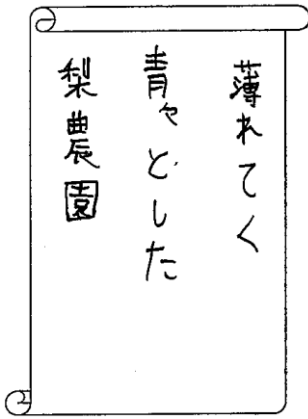 薄れてく
青々とした
梨農園